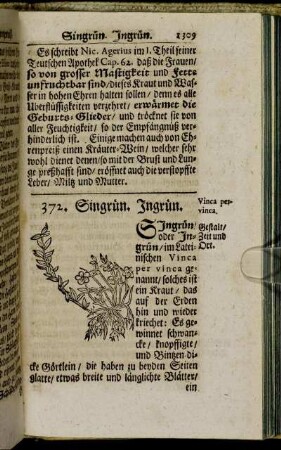 Singrün. Jngrün. 1309
Es schreibt Nic. Agerius im 1. Theil seiner
Teutschen Apothek Cap. 62. daß die Frauen/
so von grosser Mastigkeit und Fette
unfruchtbar sind/ dieses Kraut und Was-
ser in hohen Ehren halten sollen/ denn es alle
Uberflüssigkeiten verzehret/ erwärmet die
Geburts-Glieder/ und tröcknet sie von
aller Feuchtigkeit/ so der Empfängnüß ver-
hinderlich ist. Einige machen auch von Eh-
renpreiß einen Kräuter-Wein/ welcher sehr
wohl dienet denen/ so mit der Brust und Lun-
ge preßhafft sind/ eröffnet auch die verstopffte
Leber/ Miltz und Mutter.
372. Singrün. Jngrün.
Vinca per-
vinca.
Singrün/
oder Jn-
grün/ im Latei-
nischen Vinca
per vinca ge-
nannt/ solches ist
ein Kraut/ das
auf der Erden
hin und wieder
kriechet: Es ge-
winnet schwan-
cke/ knopffigte/
und Bintzen di-
cke Gertlein/ die haben zu beyden Seiten
glatte/ etwas breite und länglichte Blätter/
ein
Gestalt/
Zeit und
Ort.